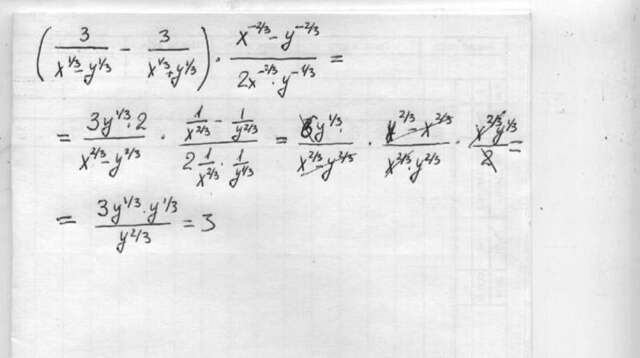 (3/(x^{1/3} - y^{1/3}) - 3/(x^{1/3} + y^{1/3})) · (x^{-2/3} - y^{-2/3})/(2x^{-2/3} · y^{-1/3}) =
= (3y^{1/3} · 2)/(x^{2/3} - y^{2/3}) · (1/x^{2/3} - 1/y^{2/3})/(2 1/x^{2/3} · 1/y^{1/3}) = (6y^{1/3} ·)/(x^{2/3} - y^{2/3}) · (y^{2/3} - x^{2/3})/(x^{2/3} · y^{2/3}) · (x^{2/3} y^{1/3})/2 =
= (3y^{1/3} · y^{1/3})/y^{2/3} = 3